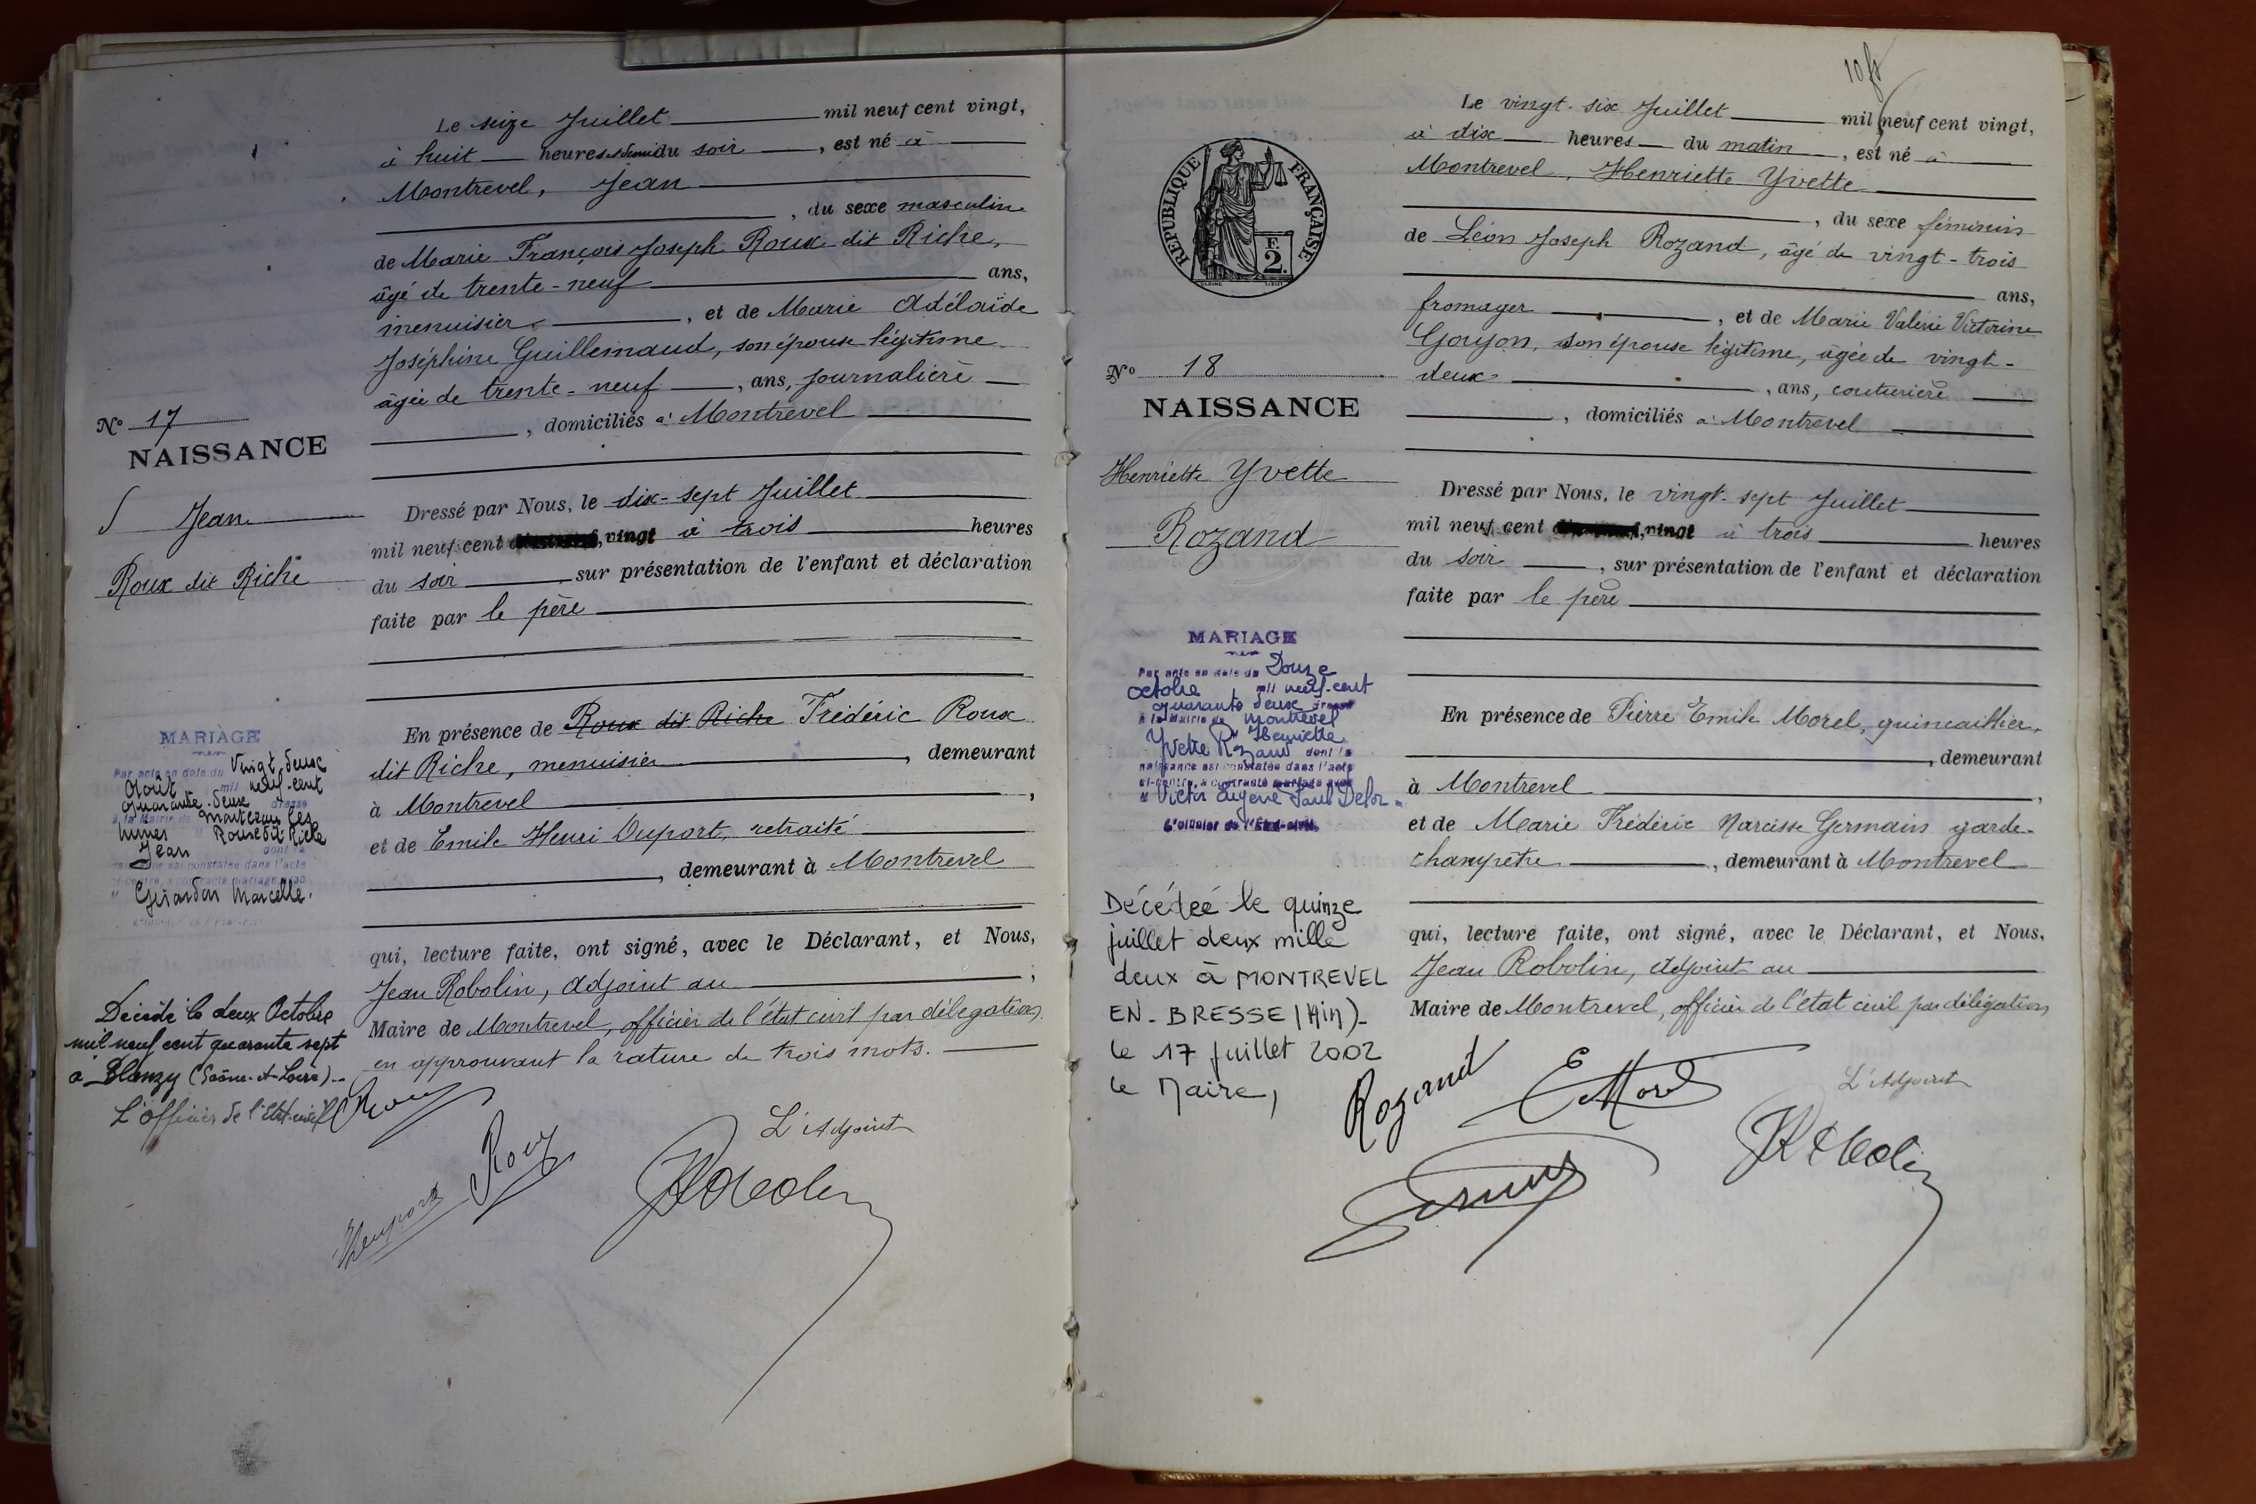 Le seize Juillet mil neuf cent vingt,
à huit heures et demi du soir, est né à
Montrevel, Jean
, du sexe masculin
de Marie François Joseph Roux dit Riche,
âgé de trente-neuf ans,
menuisier, et de Marie Adélaïde
Joséphine Guillemaud, son épouse légitime
âgée de trente-neuf, ans, journalière
, domiciliés à Montrevel
N° 17
NAISSANCE
Jean
Roux dit Riche
Dressé par Nous, le dix-sept Juillet
mil neuf cent vingt à trois heures
du soir, sur présentation de l'enfant et déclaration
faite par le père
En présence de Roux dit Riche Frédéric Roux
dit Riche, menuisier, demeurant
à Montrevel,
et de Emile Henri Duport, retraité
, demeurant à Montrevel
qui, lecture faite, ont signé, avec le Déclarant, et Nous,
Jean Robolin, Adjoint au,
Maire de Montrevel, officier de l'état civil par délégation
en approuvant la rature de trois mots.
MARIAGE
Par acte en date du Vingt deux
Août mil neuf-cent
quarante-deux dressé
à la Mairie de Montceau les
mines Roux dit Riche
Jean dont la
naissance est constatée dans l'acte
ci-contre, a contracté mariage avec
M Girardon Marcelle.
Décédé le deux Octobre
mil neuf cent quarante sept
à Blanzy (Saône-et-Loire)
L'officier de l'Etat-civil
Roux
Duport
L'Adjoint
JRobolin
10 ft
REPUBLIQUE FRANÇAISE
F.
2.
Le vingt-six Juillet mil neuf cent vingt,
à dix heures du matin, est né à
Montrevel, Henriette Yvette
, du sexe féminin
de Léon Joseph Rozand, âgé de vingt-trois
ans,
fromager, et de Marie Valérie Victorine
Goujon, son épouse légitime, âgée de vingt-
deux, ans, couturière
, domiciliés à Montrevel
N° 18
NAISSANCE
Henriette Yvette
Rozand
Dressé par Nous, le vingt-sept Juillet
mil neuf cent vingt à trois heures
du soir, sur présentation de l'enfant et déclaration
faite par le père
En présence de Pierre Emile Morel, quincaillier,
, demeurant
à Montrevel,
et de Marie Frédéric Narcisse Germain garde-
champêtre, demeurant à Montrevel
qui, lecture faite, ont signé, avec le Déclarant, et Nous,
Jean Robolin, Adjoint au
Maire de Montrevel, officier de l'état civil par délégation
MARIAGE
Par acte en date du Douze
octobre mil neuf-cent
quarante deux dressé
à la Mairie de Montrevel
Henriette
Yvette Rozand dont la
naissance est constatée dans l'acte
ci-contre, a contracté mariage avec
M Victor Eugène Paul
L'officier de l'Etat-civil.
Décédée le quinze
juillet deux mille
deux à MONTREVEL
EN-BRESSE (Ain)-
le 17 juillet 2002
le Maire,
Rozand
EMorel
L'Adjoint
JRobolin